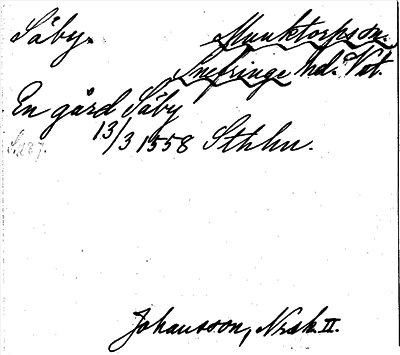 Säby. Munktorps sn.
Snefringe hd. Vst.
En gård Säby
13/3 1558 Sthlm.
Johansson, Noak. II.